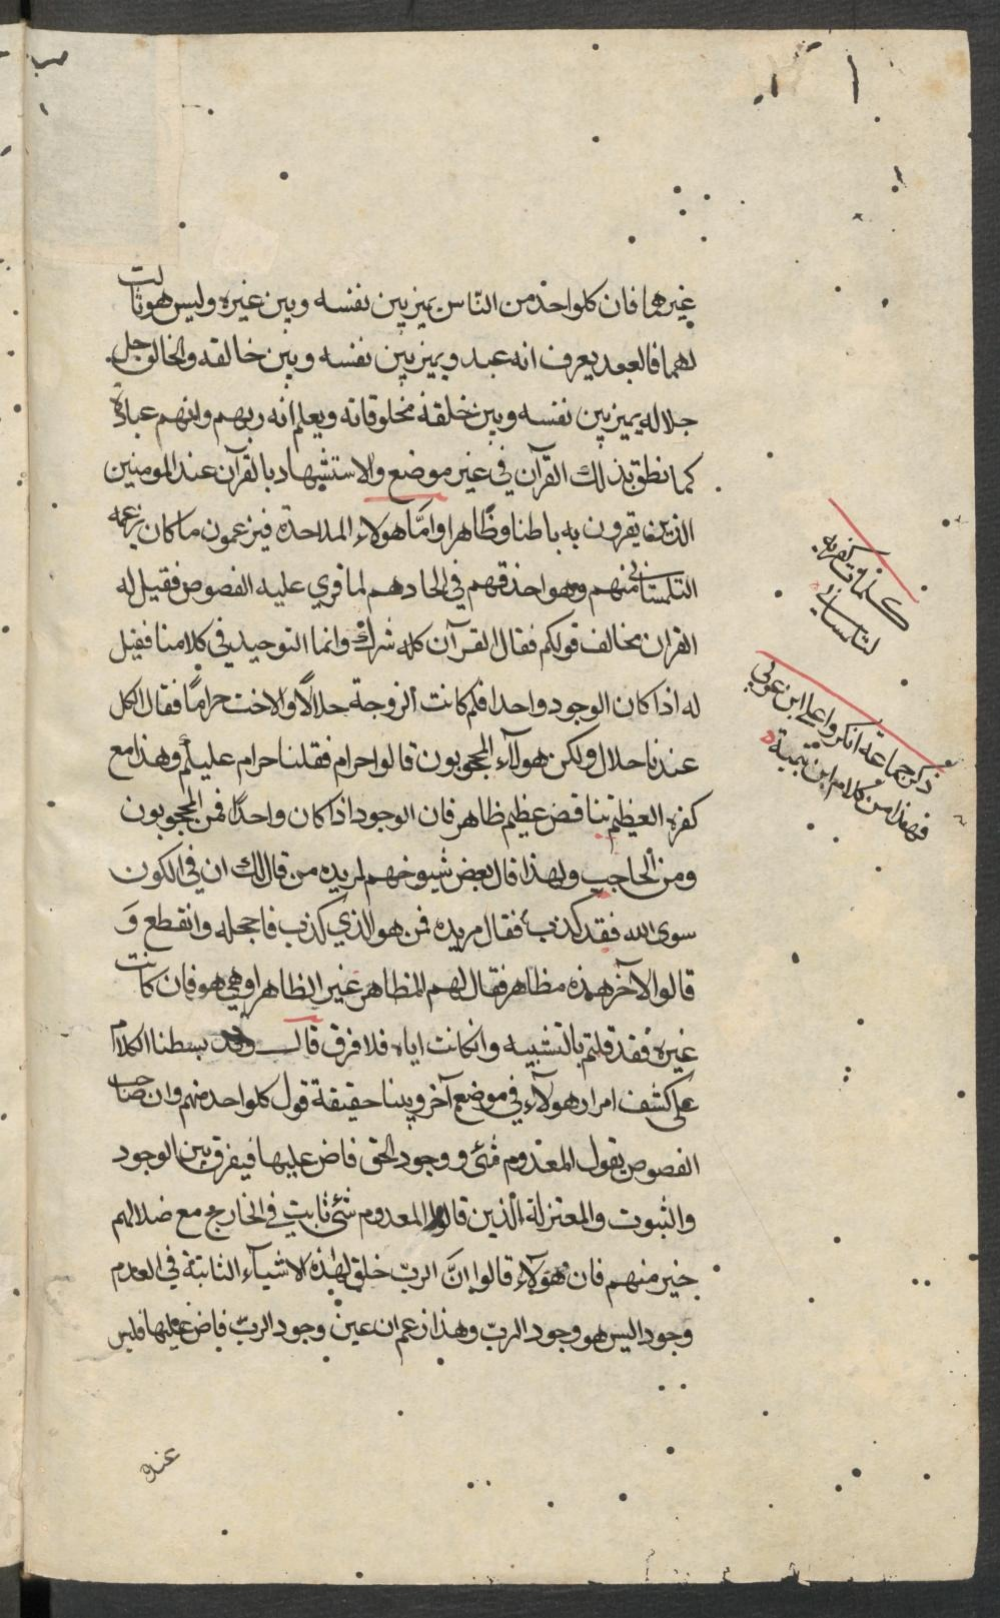 غيرهما فان كلواحد من الناس يميز بين نفسه وبين غيره وليس هو ثالث
لهما فالعبد يعرف انه عبد ويميز بين نفسه وبين خالقه والخالق جل
جلاله يميز بين نفسه وبين خلقه مخلوقاته ويعلم انه ربهم وانهم عباده
كما نطق بذلك القرآن في غير موضع والاستشهاد بالقرآن عند المومنين
الذين يقرون به باطنا وظاهرا وامّا هولاء الملاحدة فيزعمون ما كان يزعمه
التلمساني منهم وهو احذقهم في الحادهم لما قري عليه الفصوص فقيل له
القران يخالف قولكم فقال القرآن كله شرك وانما التوحيد في كلامنا فقيل
له اذا كان الوجود واحدا فلم كانت الزوجة حلالًا والاخت حرامًا فقال الكل
عندنا حلال ولكن هولآء المحجوبون قالوا حرام فقلنا حرام عليكم وهذا مع
كفره العظيم تناقض عظيم ظاهر فان الوجود اذا كان واحدًا فمن المحجوبون
ومن الحاجب ولهذا قال بعض شيوخهم لمريده من قال لك ان في الكون
سوى الله فقد كذب فقال مريده فمن هو الذي كذب فاحجله وانقطع وَ
قالوا الآخر هذه مظاهر فقال لهم المظاهر غير الظاهر او هي هو فان كانت
غيره فقد قلتم بالتشبيه وانكانت اياه فلا فرق قال وقد بسطنا الكلام
على كشف اسرار هولآء في موضع آخر وبينا حقيقة قول كلواحد منهم وان صاحب
الفصوص يقول المعدوم شئ ووجود الحق فاض عليها فيفرق بين الوجود
والثبوت والمعتزلة الذين قالوا المعدوم شئ ثابت في الخارج مع ضلالهم
خير منهم فان هولآء قالوا انَّ الربّ خلق لهذه الاشياء الثابتة في العدم
وجودا ليس هو وجود الربّ وهذا زعم ان عين وجود الربّ فاض عليها فليس
عنده
كلمات كفريه
لتلمساني
ذكر جماعة انكروا على ابن عربي
فهذا من كلام ابن تيمية